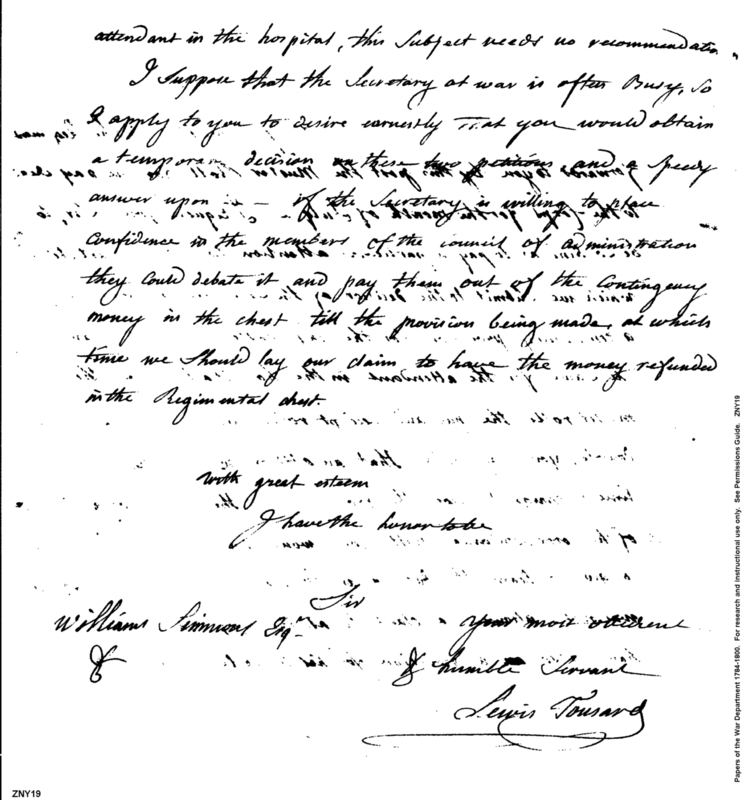 attendant in the hospital, this Subject needs no recommendation.
I Suppose that the Secretary at war is often Busy, So
I apply to you to desire earnestly That you would obtain
a temporary decision on these two petitions and a speedy
answer upon — if the Secretary is willing to place
Confidence in the members of the council of administration
they could debate it and pay them out of the Contingency
money in the chest till the provision being made, at which
time we Should lay our claim to have the money refunded
in the Regimental chest.
with great esteem
I have the honor to be
Sir
William Simmons Esqr
your most obedient
& humble Servant
Lewis Tousard
Papers of the War Department 1784-1800. For research and instructional use only. See Permissions Guide. ZNY19
ZNY19